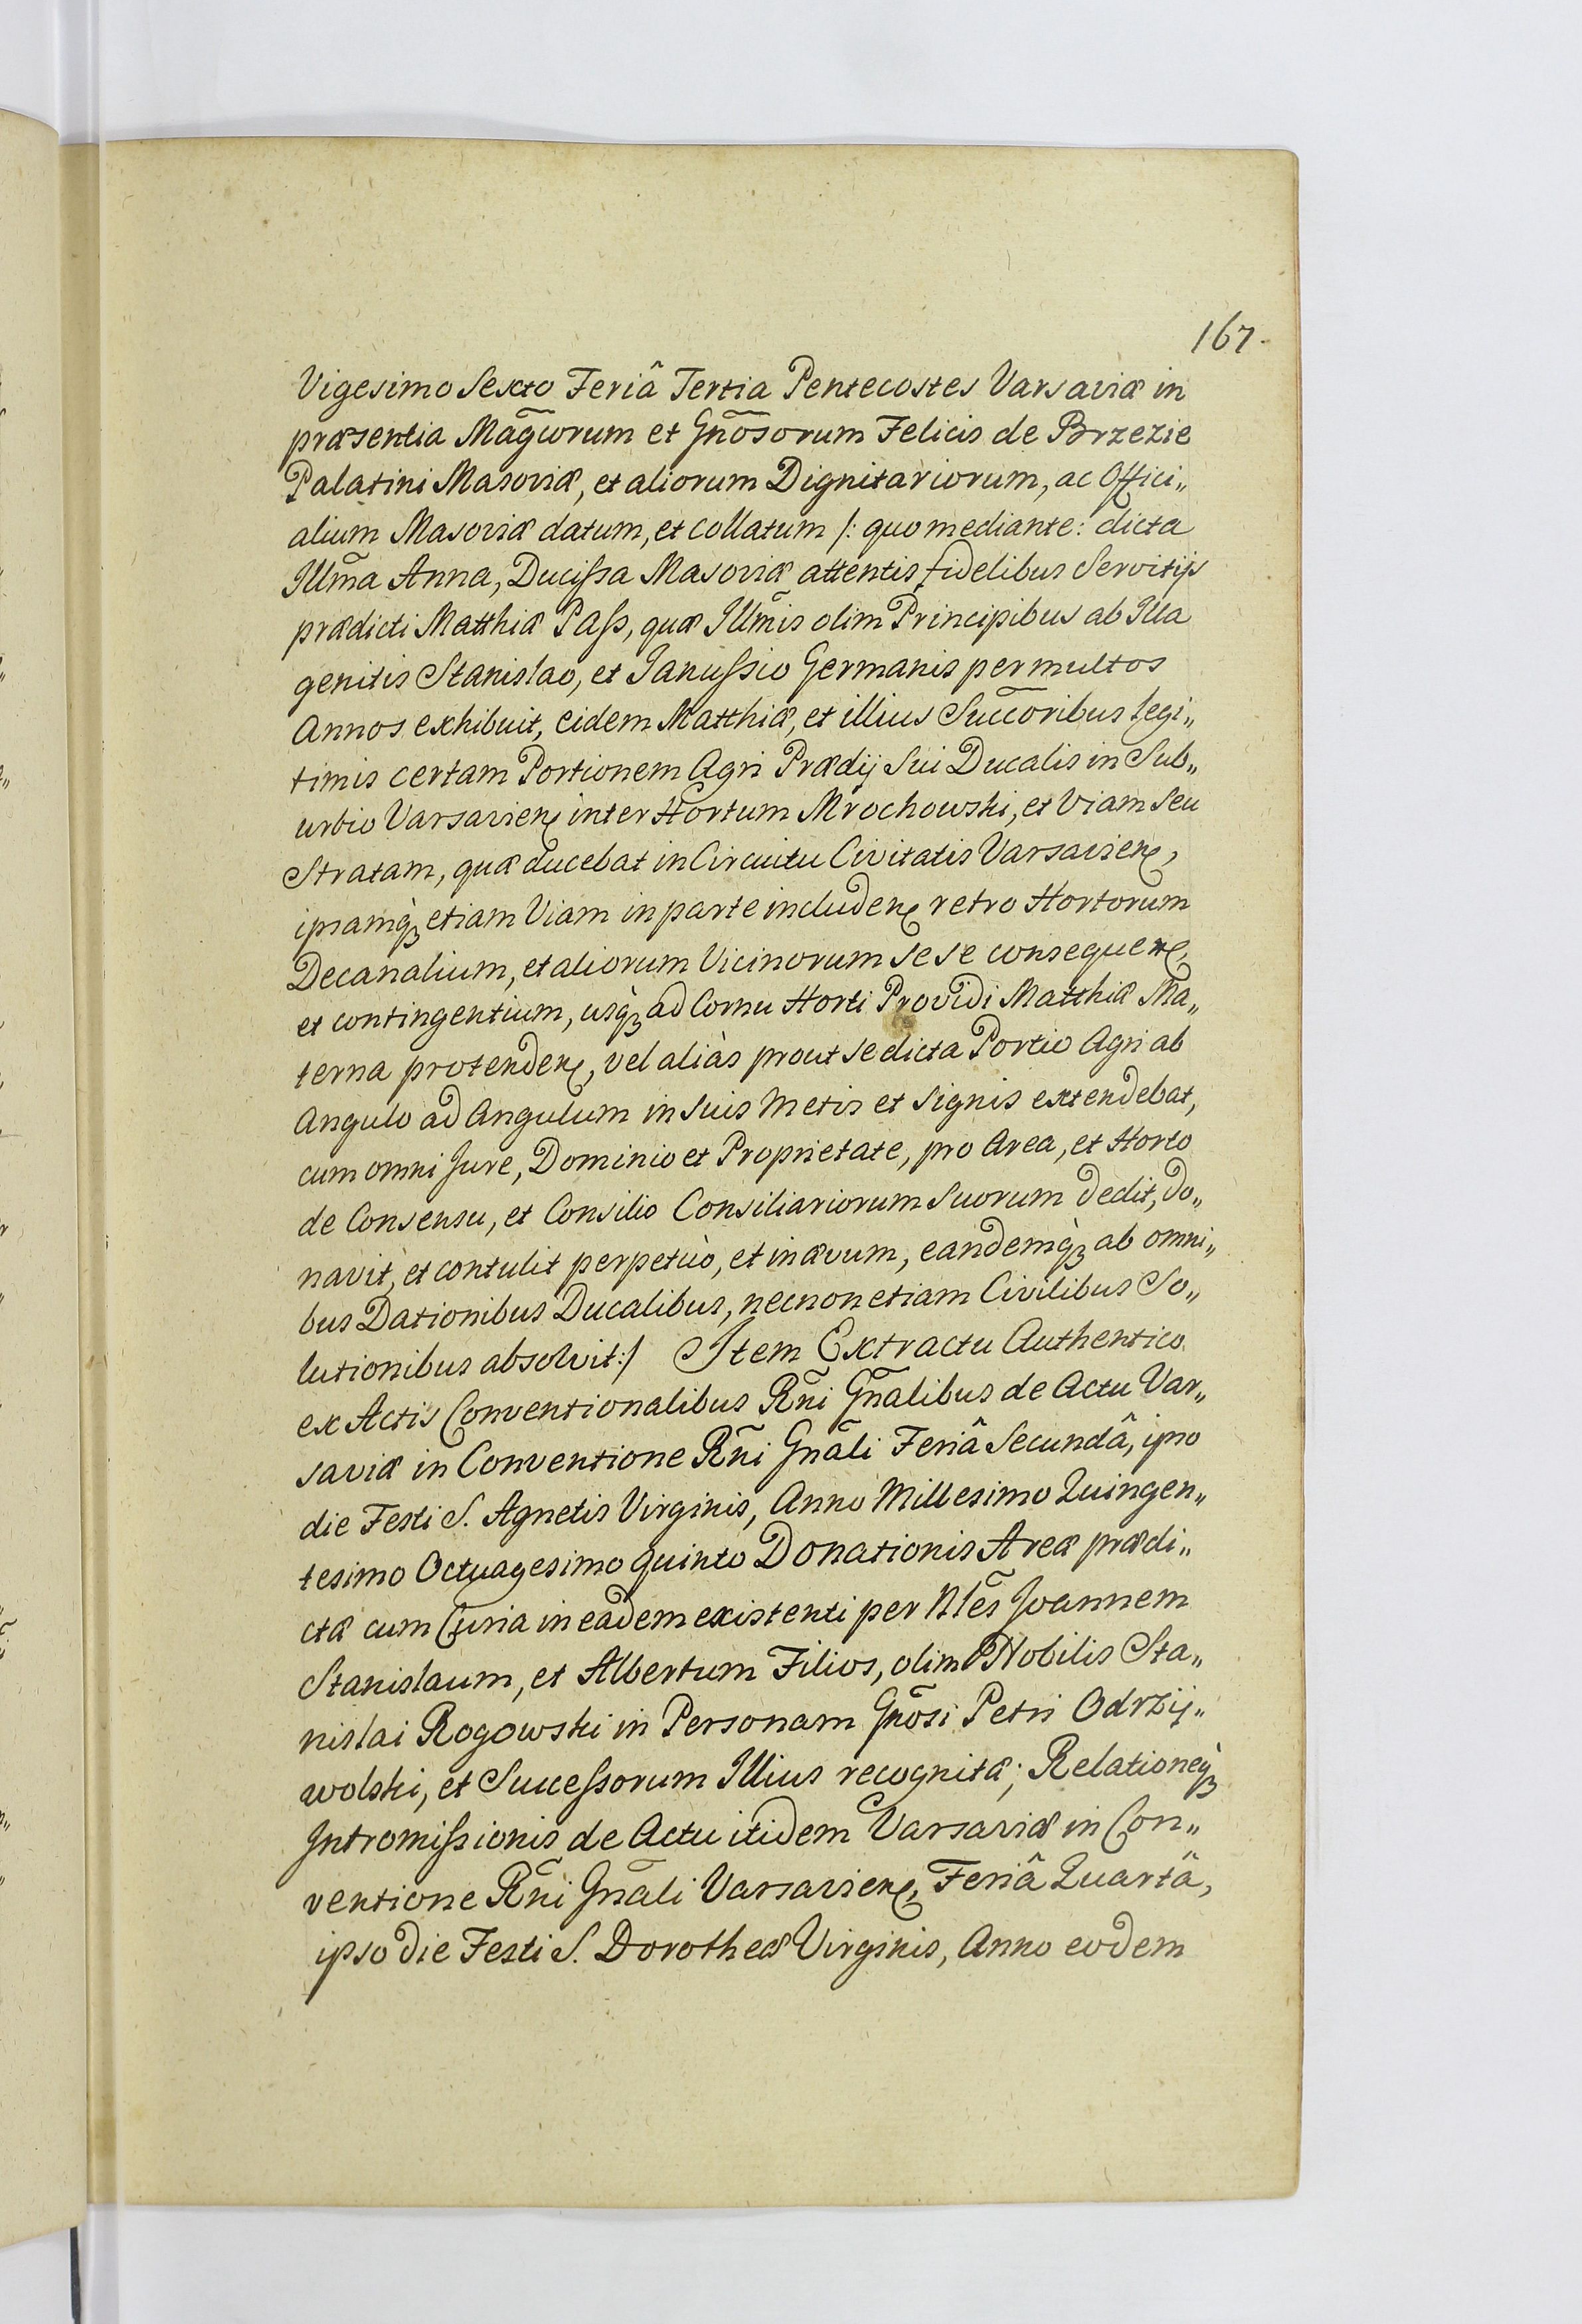 167.
Vigesimo Sexto Feriâ Tertia Pentecostes Varsaviæ in
præsentia Mag̃corum et Gñosorum Felicis de Brzezie
Palatini Masoviæ, et aliorum Dignitariorum, ac Offici„
alium Masoviæ datum, et collatum /: quo mediante: dicta
Illm̃a Anna, Ducissa Masoviæ attentis fidelibus Servitijs
prædicti Matthiæ Pass, quæ Illm̃is olim Principibus ab Illa
genitis Stanislao, et Janussio Germanis per multos
Annos exhibuit, eidem Matthiæ, et illius Succ̃oribus legi„
timis certam Portionem Agri Prædij Sui Ducalis in Sub„
urbio Varsavien̄ inter Hortum Mrochowski, et Viam seu
Stratam, quæ ducebat in Circuitu Civitatis Varsavien̄,
ipsamq̀ꝫ etiam Viam in parte includen̄ retro Hortorum
Decanalium, et aliorum Vicinorum se se consequen̄,
et contingentium, usq̀ꝫ ad Cornu Horti Providi Matthiæ Ma„
terna protenden̄, vel aliàs prout se dicta Portio Agri ab
Angulo ad Angulum in suis Metis et signis extendebat,
cum omni Jure, Dominio et Proprietate, pro Area, et Horto
de Consensu, et Consilio Consiliariorum Suorum dedit, do„
navit, et contulit perpetùo, et in ævum, eandemq̀ꝫ ab omni„
bus Dationibus Ducalibus, necnon etiam Civilibus So„
lutionibus absolvit:/ Item Extractu Authentico
ex Actis Conventionalibus Rñi Gñalibus de Actu Var„
saviæ in Conventione Rñi Gñali Feriâ Secundâ, ipso
die Festi S. Agnetis Virginis, Anno Millesimo Quingen„
tesimo Octuagesimo quinto Donationis Areæ prædi„
ctæ cum Curia in eadem existenti per Nlẽs Joannem
Stanislaum, et Albertum Filios, olim Nobilis Sta„
nislai Rogowski in Personam Gñosi Petri Odrzij„
wolski, et Successorum Illius recognitæ; Relationeq̀ꝫ
Intromissionis de Actu itidem Varsaviæ in Con„
ventione Rñi Gñali Varsavien̄, Feriâ Quartâ,
ipso die Festi S. Dorotheæ Virginis, Anno eodem